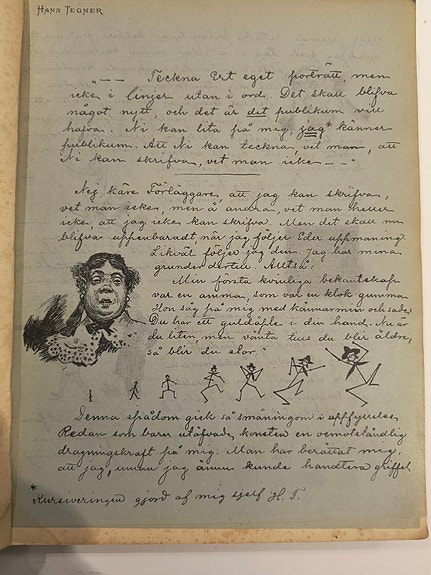 HANS TEGNER
"— — Teckna Ert eget porträtt, men
icke i linjer utan i ord. Det skall blifva
något nytt, och det är det publikum vill
hafva. Ni kan lita på mig, jag* känner
publikum. Att Ni kan teckna, vet man, att
Ni kan skrifva, vet man icke — — "
Nej, käre Förläggare, att jag kan skrifva,
vet man icke, men å andra, vet man heller
icke, att jag icke kan skrifva. Men det skall nu
blifva uppenbaradt, när jag följer Eder uppmaning.
Likväl följer jag den. Jag har mina
grunder dertill. Alltså:
Min första kvinliga bekantskap
var en amma, som var en klok gumma.
Hon såg på mig med kännarmin och sade:
Du har ett guldäple i din hand. Nu är
du liten, men vänta tills du blir äldre,
så blir du stor."
Denna spådom gick så småningom i uppfyllelse.
Redan som barn utöfvade konsten en oemotståndlig
dragningskraft på mig. Man har berättat mig,
att jag, innan jag ännu kunde handtera griffel
* Kursiveringen gjord af mig sjelf H. T.